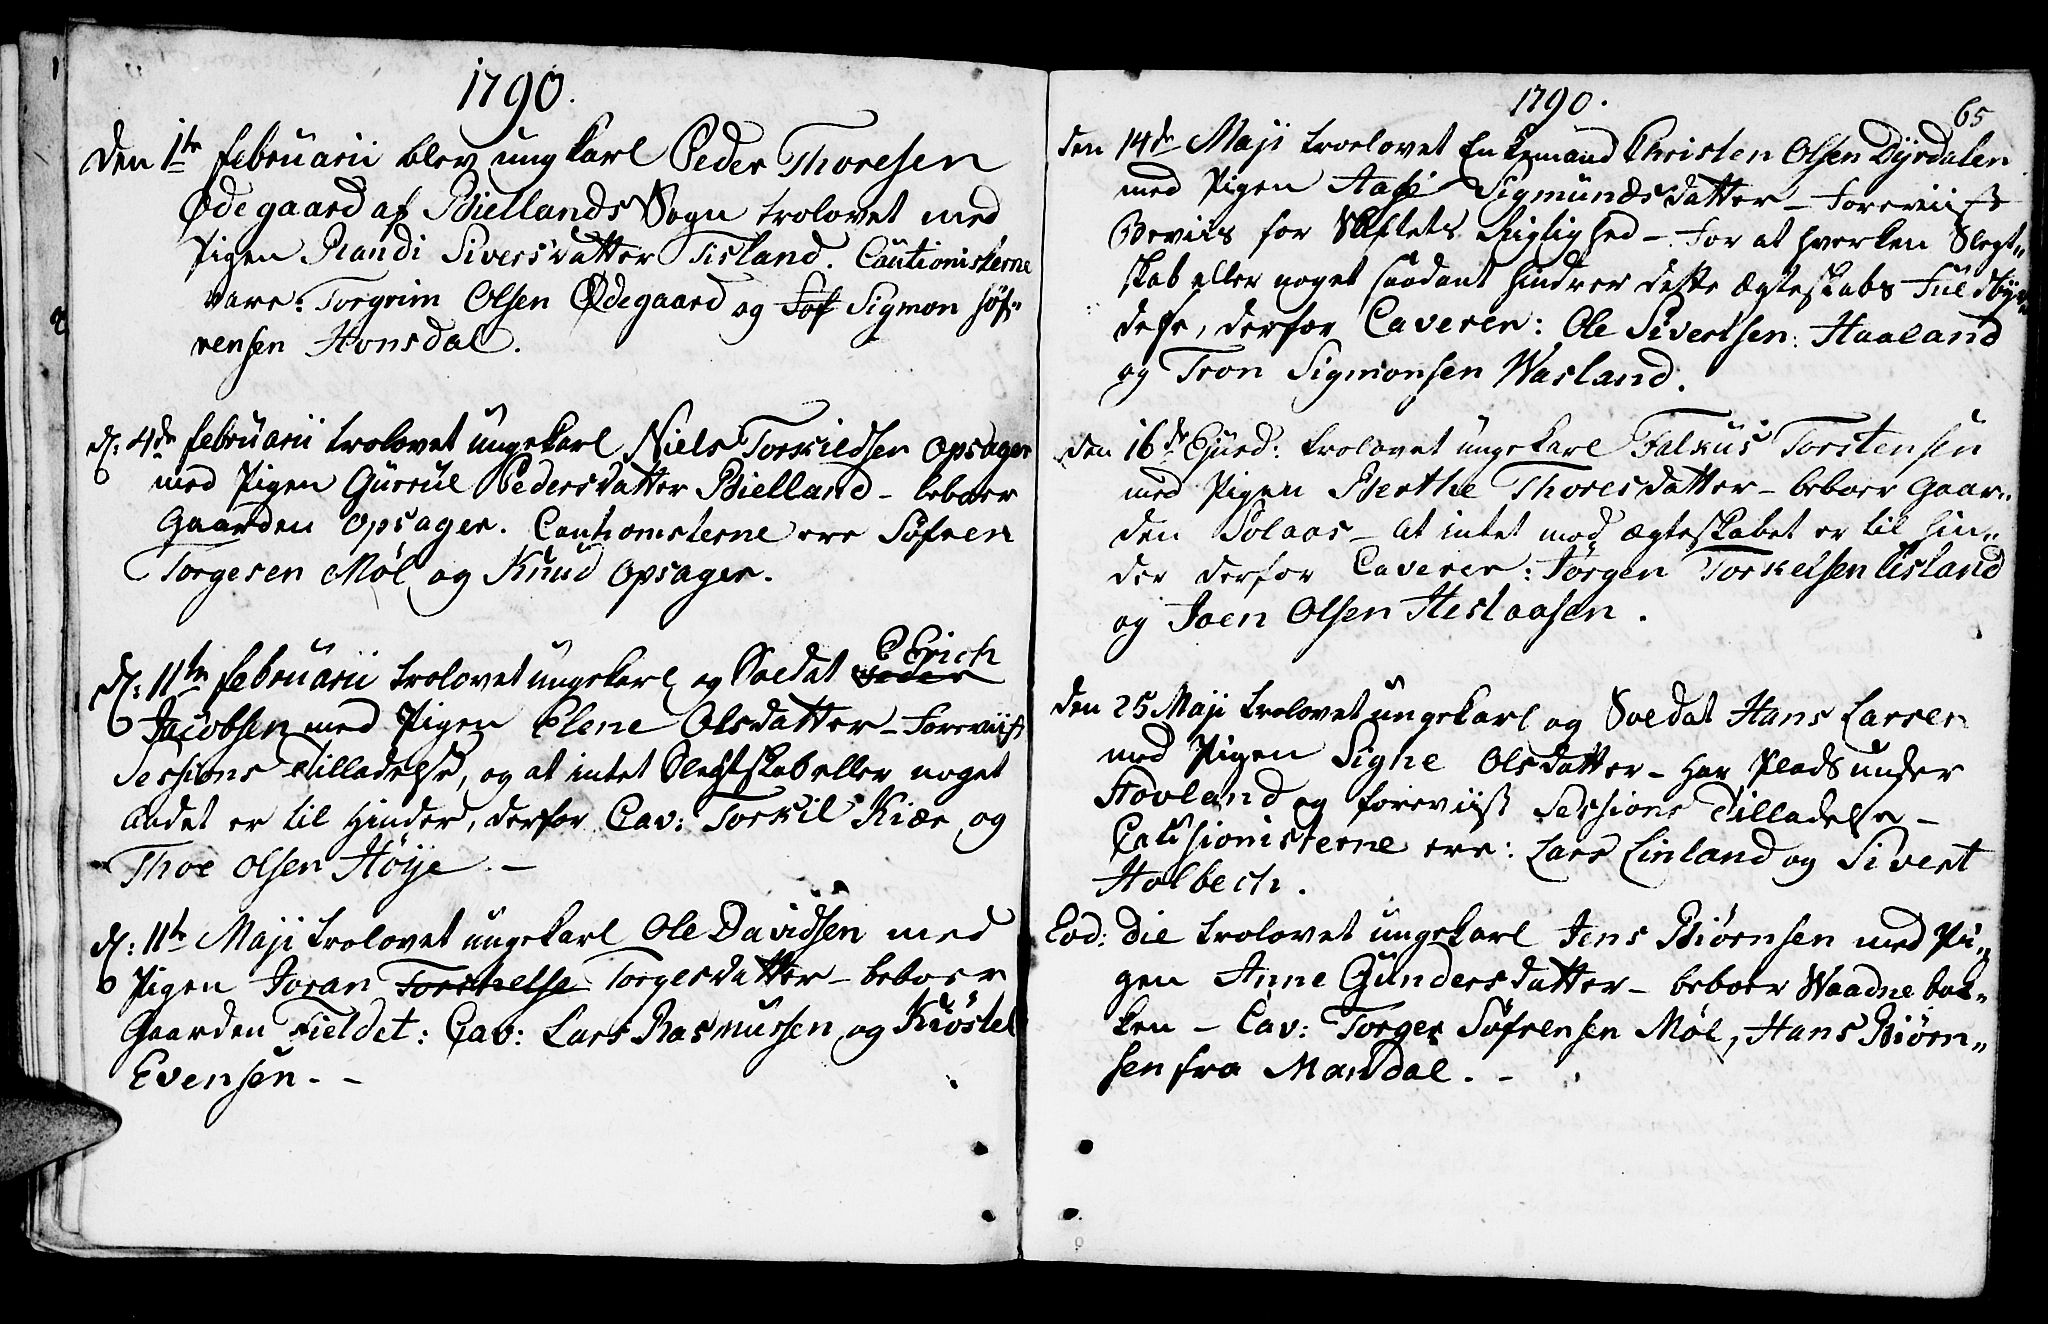 1790.
Den 1te februarii blev ungkarl Peder Thoresen
Ødegaard af Biellands Sogn trolovet med
Pigen Randi Siversdatter Tisland. Cautionisterne
vare: Torgrim Olsen Ødegaard og Sof Sigmon Søf„
rensen Honsdal.
d: 4de februarii trolovet ungekarl Niels Torkildsen Opsager
med Pigen Gurrul Pedersdatter Bielland – beboer
Gaarden Opsager. Cautionisterne ere Søfren
Torgesen Møl og Knud Opsager.
Erich
d: 11te februarii trolovet ungekarl og Soldat Peder
Jacobsen med Pigen Elene Olsdatter – Foreviist
Sessions Tilladelse, og at intet Slegtskab eller noget
Andet er til Hinder, derfor Cav: Torkil Kiær og
Thoe Olsen Höÿe. –
d: 11te Maji trolovet ungekarl Ole Davidsen med
Pigen Joran Torchelse Torgesdatter – beboer
Gaarden Fieldet: Cav: Lars Rasmussen og Kiöstel
Evensen. –
1790.
65
den 14de Maji troelovet Enkemand Christen Olsen Dÿrdalen
med Pigen Aase Sigmundsdatter – Foreviiste
Beviis for Skiftets Rigtighed – For at hverken Slegt„
skab eller noget saadant hindrer dette Ægteskabs Fuldbyr„
delse, derfor Caverer: Ole Sivertsen Haaland
og Tron Sigmonsen Wasland.
den 16de Ejusd: trolovet ungekarl Falkus Torstensen
med Pigen Berthe Thoresdatter – beboer Gaar„
den Solaas – At intet mod Ægteskabet er til Hin„
der derfor Caverer: Jörgen Torkelsen Tisland
og Joen Olsen Heslaasen.
den 25 Maji trolovet ungekarl og Soldat Hans Larsen
med Pigen Signe Olsdatter – har Plads under
Hovland og foreviist Sessions Tilladelse –
Causionisterne ere: Lars Linland og Sivert
Holbech.
Eod: die trolovet ungekarl Jens Biørnsen med Pi„
gen Anne Gundersdatter – beboer Waadne bak„
ken – Cav: Torger Søfrensen Møl, Hans Biørn„
sen fra Mandal. –